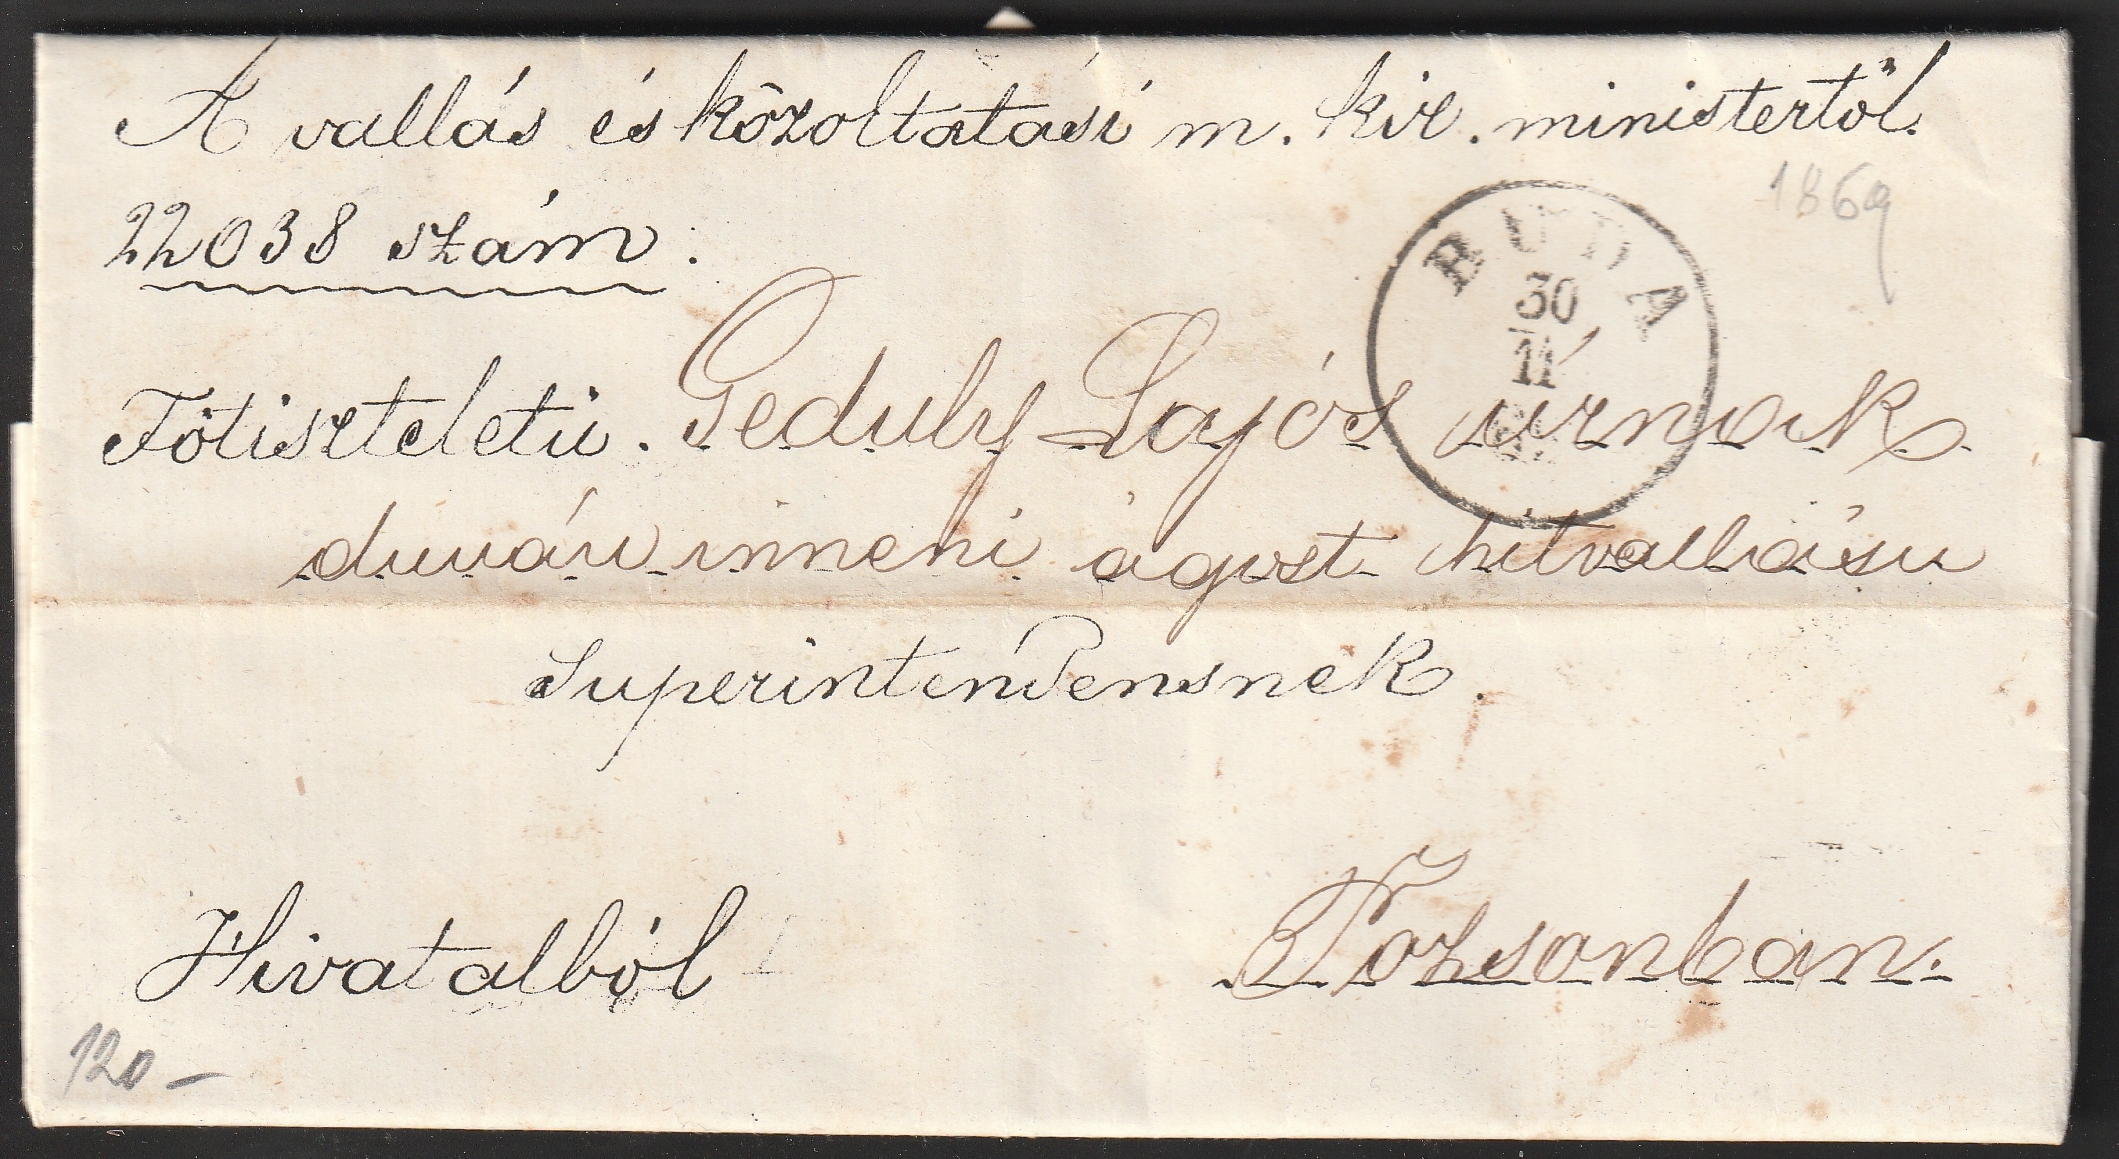 A vallás és közoltatási m. kir. ministertől.
1869
22038 szám:
BUDA
30
11
Főtiszteletü. Geduly Lajós urnak
dunán inneni ágost. hitvallásu
Superintendensnek.
Hivatalból
Pozsonban.
120 –